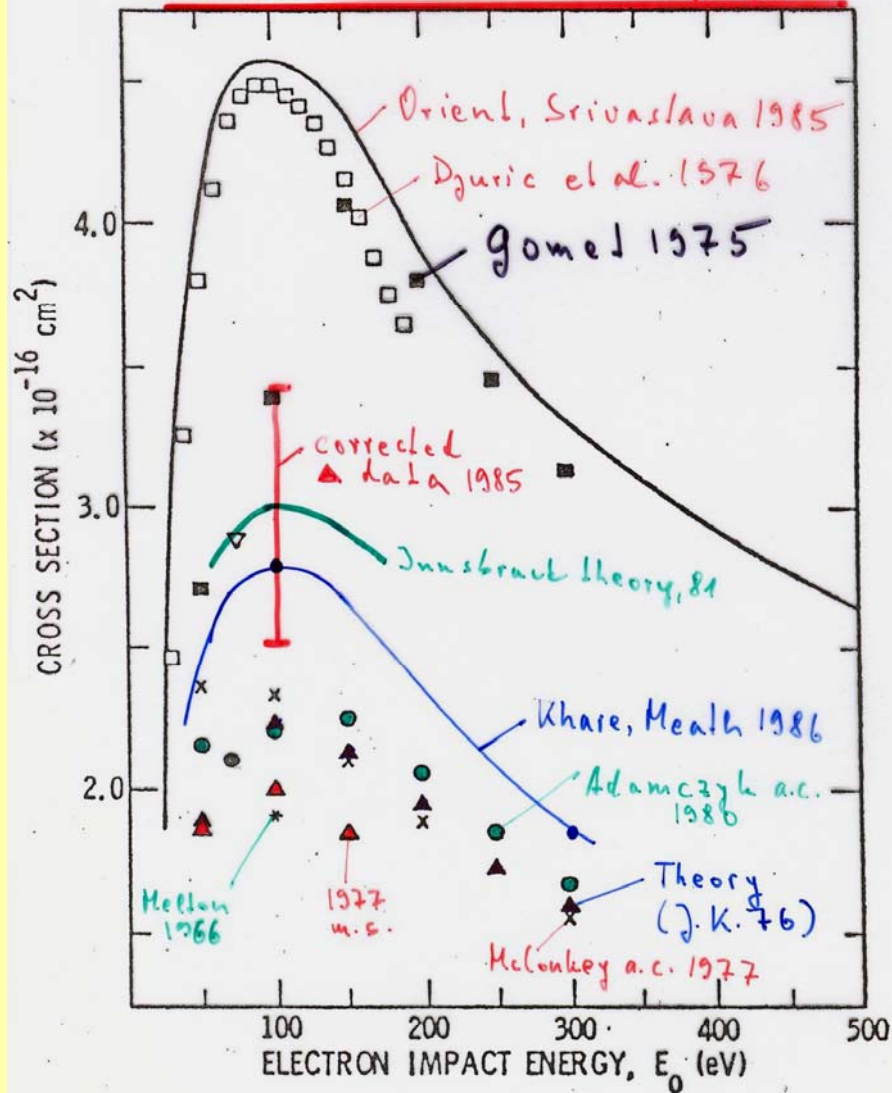 Orient, Srivastava 1985
Djuric et al. 1976
4.0
gomet 1975
CROSS SECTION (x 10⁻¹⁶ cm²)
corrected
data 1985
3.0
Innsbruck theory, 81
Khare, Meath 1986
2.0
Adamczyk a.c.
1980
Melton
1966
1977
m.s.
Theory
(J.K. 76)
McConkey a.c. 1977
100 200 300 400 500
ELECTRON IMPACT ENERGY, E₀ (eV)